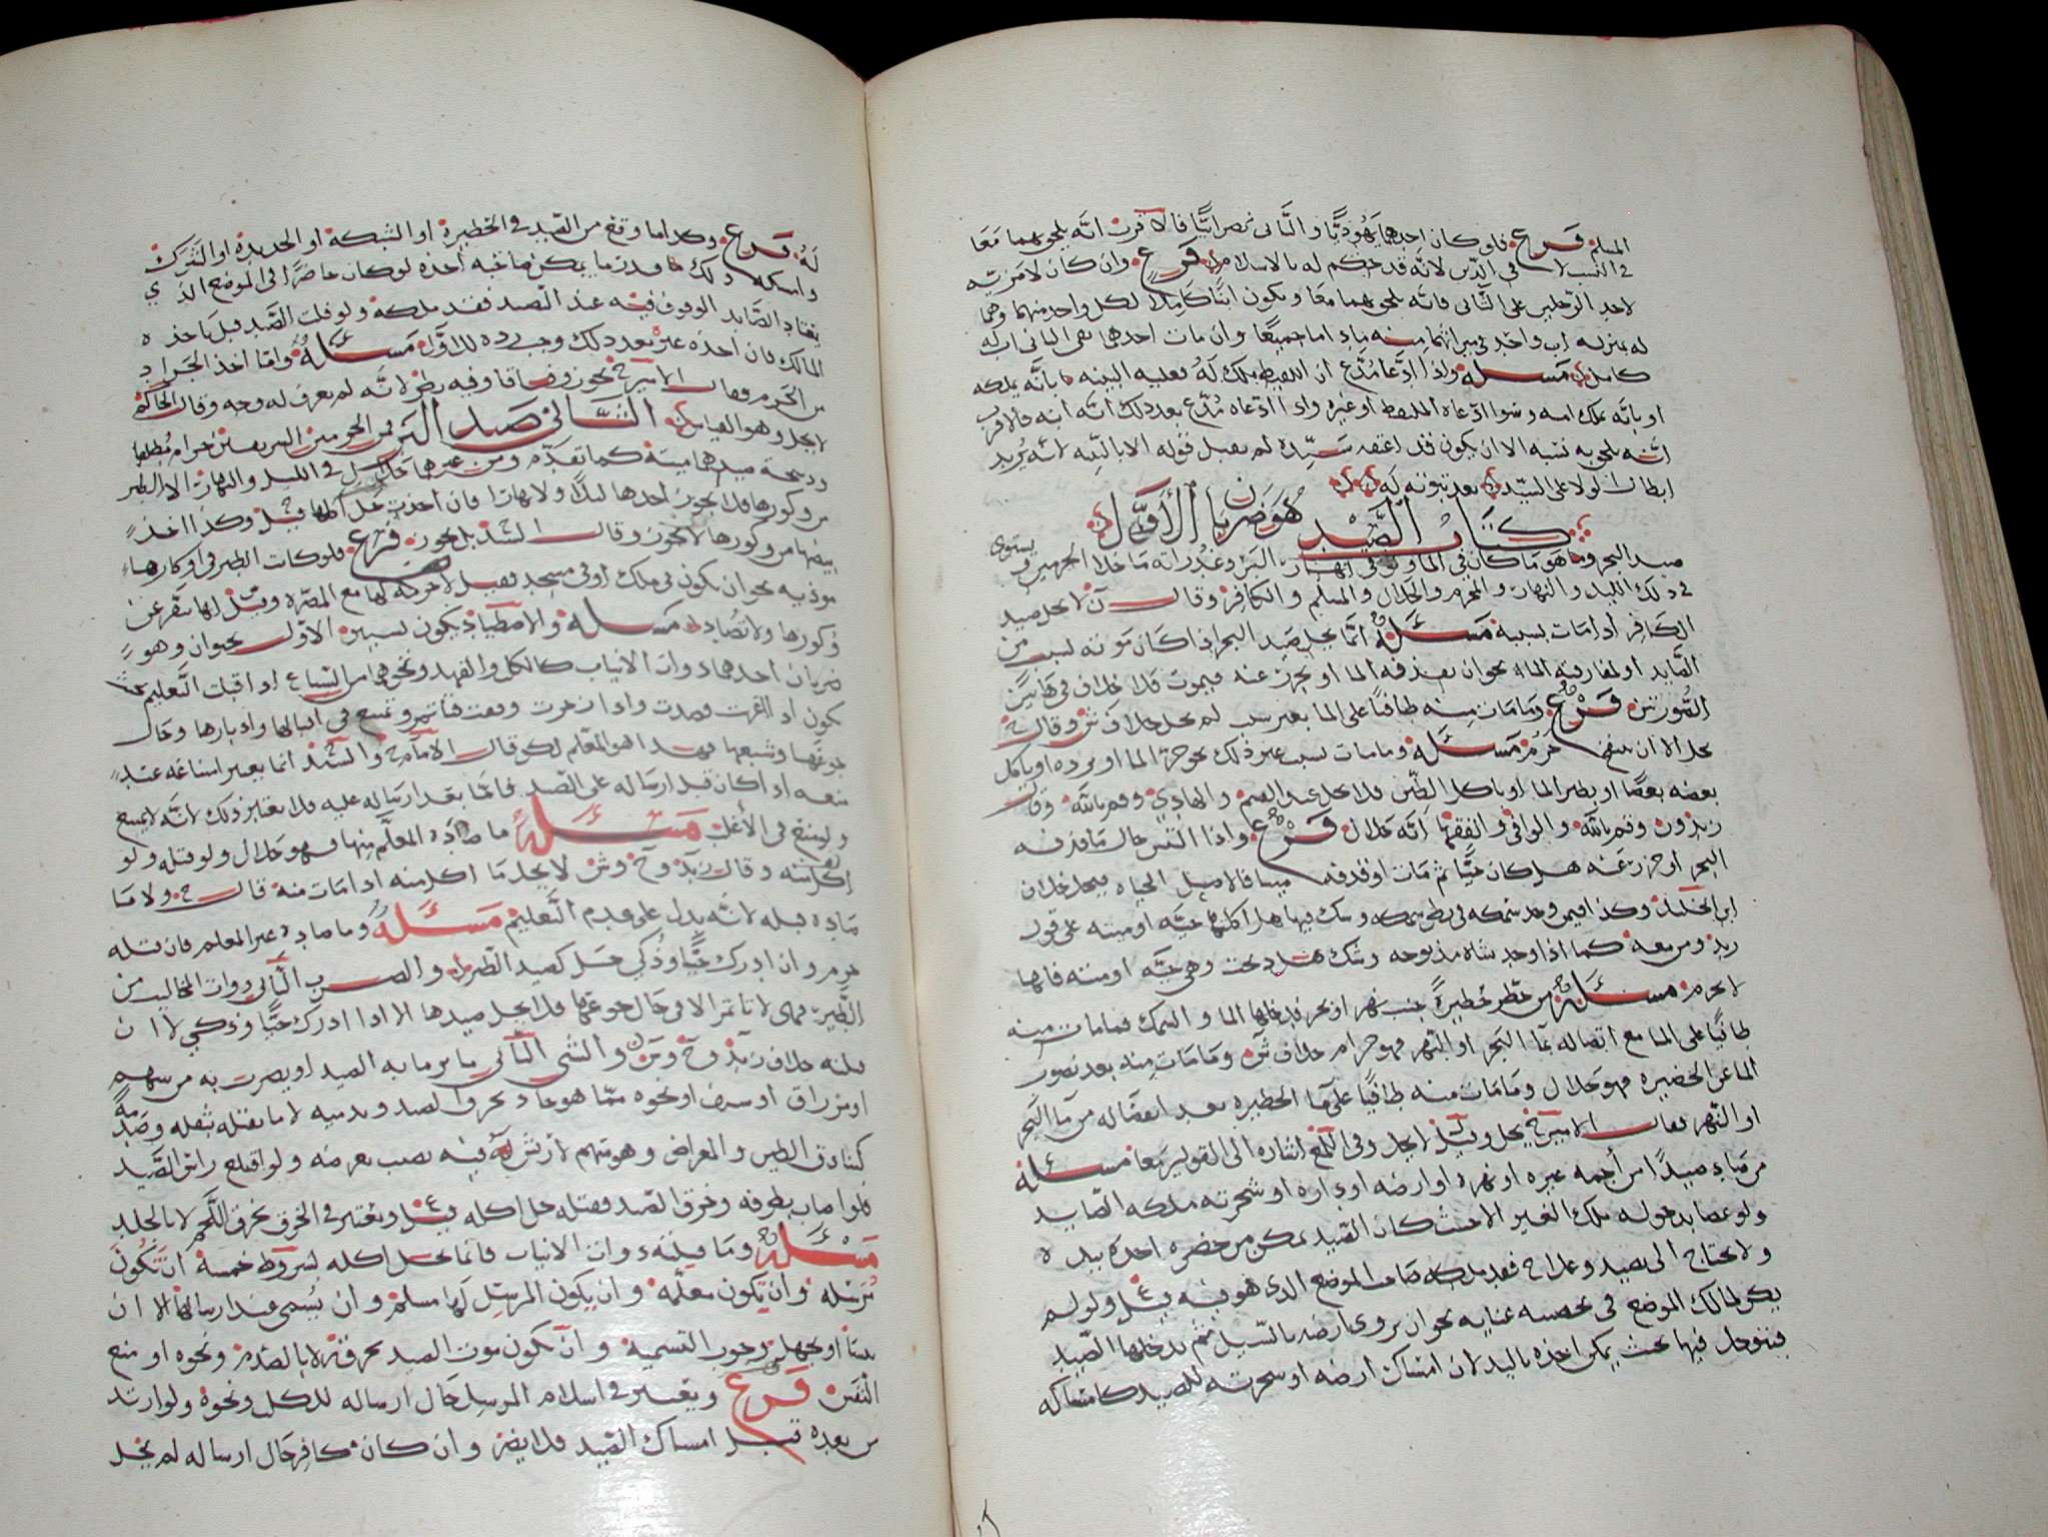 المسلم فرع فلو كان احدهما يهوديًّا والثاني نصرانيًّا فالاقرب انه يلحق بهما معا
في النسب لا في الدين لانه قد حكم له بالاسلام فرع وان كان لا مزية
لاحد الرجلين على الثاني فانه يلحق بهما معا ويكون ابنًا كاملا لكل واحد منهما وهما
له بمنزلة اب واحد في ميراثهما منه ماداما جميعًا وان مات احدهما بقي الثاني اب له
كامل مسئلة واذا ادعا مُدَّعٍ ان اللقيط ملك له فعليه البينة بانه يملكه
او بانه ملك امه وسوا ادعاه الملتقط او غيره واذا ادعاه مُدَّعٍ بعد ذلك انه ابنه فالاقرب
انه يلحق به نسبه الا ان يكون قد اعتقه سيده لم يقبل قوله الا بالبينة لانه يريد
ابطال الولا على السيد بعد ثبوته له
كتاب الصيد هو ضربان الاول
صيد البحر وهو ما كان في الما ولو في انهار البر وغدرانه ما خلا الجرمين ويستوي
في ذلك الليل والنهار والمحرم والحلال والمسلم والكافر وقال ن لا يحل صيد
الكافر اذا مات بسببه مسئلة انما يحل صيد البحر اذا كان موته بسبب من
الصايد او لمفارقته الما نحو ان يقذفه الما او يجزر عنه فيموت فلا خلاف في هاتين
الصورتين فرع وما مات منه طافيًا على الما بغير سبب لم يحل خلاف ش وقال
مسئلة وما مات بسبب غير ذلك نحو حرة الما او برده او ياكل
بعضه بعضًا او يطير الما او ياكل الطين فلا يحل عند القسم والهادي وم بالله وقال
زيد ون وم بالله والوافي والفقها انه حلال فرع واذا التبس حال ما قذفه
البحر او جزر عنه هل كان حيًّا ثم مات او قذفه ميتا فالاصل الحياه فيحل خلاف
ابن الخليل وكذا فيمن وجد سمكه في بطن سمكه وشك فيها هل اكلتها حيه او ميته على قول
زيد ومن معه كما اذا وجد شاة مذبوحه وشك هل ذبحت وهي حيه او ميته فانها
لا تحرم مسئلة من حظر حظيرة جنب نهر او بحر فدخلها الما والسمك فما مات منه
طافيًا على الما مع اتصاله بما البحر او النهر فهو حرام خلاف ش وما مات منه بعد نضوب
الما عن الحظيره فهو حلال وما مات منه طافيًا على ما الحظيره بعد انفصاله من ما البحر
او النهر فقال الاميرح يحل وقيل لا يحل وفي اللمع اشاره الى القولين معا مسئلة
من صاد صيدًا من أجمه غيره او نهره او ارضه او داره او شجرته ملكه الصايد
ولو عصا بدخوله ملك الغير الا حيث كان الصيد يمكن من حضره اخذه بيده
ولا يحتاج الى تصيد وعلاج فقد ملكه صاحب الموضع الذي هو فيه قيل ولو لم
يكن لمالك الموضع في تحصيله عنايه نحو ان يروي ارضه بالسيل ثم يدخلها الصيد
فيتوحل فيها بحيث يمكن اخذه باليد لان امساك ارضه او شجرته للصيد كامساكه
له فرع وكذا ما وقع من الصيد في الحظيرة او الشبكة او الحديدة او الشرك
واسكله ذلك ما قدر ما يمكن صاحبه اخذه لو كان حاضرًا في الموضع الذي
يعتاد الصايد الوقوف فيه عند الصيد فقد ملكه ولو فلت الصيد قبل ياخذه
المالك فان اخذه غيره بعد ذلك وجب رده للاول مسئلة واما اخذ الجراد
من الحرم فقال الاميرح يجوز وفاقا وفيه نظر لانه لم يعرف له وجه وقال الحاكم
لا يحل وهو القياس الثاني صيد البر فمن الحرمين الشريفين حرام مطلقا
وذبحة صيدهما ميتة كما تقدم ومن غيرهما حلال في الليل والنهار الا الطير
من وكورها فلا يجوز اخذها ليلا ولا نهارا فان اخذت حل اكلها قيل وكذا اخذ
بيضها من وكورها لا يجوز وقال السيد بل يجوز فرع فلو كانت الطير في اوكارها
موذيه نحو ان تكون في ملك او في مسجد فقيل لا حرمة لها مع المضره وقيل لها تنفر عن
وكورها ولا تصاد مسئلة والاصطياد يكون لسببين الاول بحيوان وهو
ضربان احدهما ذوات الانياب كالكلب والفهد ونحوهما من السباع اذا قبلت التعليم
تكون اذا اغريت قصدت واذا زجرت وقفت فتاتمر وتمتنع في اقبالها وادبارها وحال
جوعها وشبعها فهذا هو المعلم لكن قال الامام ح والسيد انما يعتبر امتناعه عند
منعه اذا كان قبل ارساله على الصيد فاما بعد ارساله عليه فلا يعتبر ذلك لانه لا يمتنع
ولا يمتنع في الأغلب مسئلة ما صاده المعلم منها فهو حلال ولو قتله ولو
اكل منه وقال زيد وح وش لا يحل ما اكل منه اذا مات منه قال ح ولا ما
صاده قبله لانه يدل على عدم التعليم مسئلة وما صاده غير المعلم فان قتله
حرم وان ادرك حيًّا وذكي حل كصيد الطير والضرب الثاني ذوات المخاليب من
الطير فهي لا تاتمر الا في حال جوعها فلا يحل صيدها الا اذا ادرك حيًّا وذكي لا ان
قتله خلاف زيد وح وش والشي الثاني ما يرما به الصيد او يضرب به من سهم
او مزراق او سيف او نحوه مما هو حاد يخرق الصيد ويدميه لا ما يقتله بثقله وصدمه
كبنادق الطين والمعراض وهو سهم لا ريش له فيه نصيب بعرضه ولو اقتلع راس الصيد
فلو اصاب بطرفه وخرق الصيد فقتله حل اكله قيل ويعتبر في الخرق بخرق اللحم لا بالجلد
مسئلة وما قتلته ذوات الانياب فانما يحل اكله لشروط خمسة ان تكون
مرسله وان تكون معلمه وان يكون المرسل لها مسلم وان يُسمي عند ارسالها الا ان
ينسا او يجهل وجوب التسميه وان يكون موت الصيد بخرقه لا بالصدم ونحوه او منع
النفس فرع ويعتبر في اسلام المرسل حال ارساله للكلب ونحوه ولو ارتد
من بعده قبل امساك الصيد فلا يضر وان كان كافر حال ارساله لم يحل